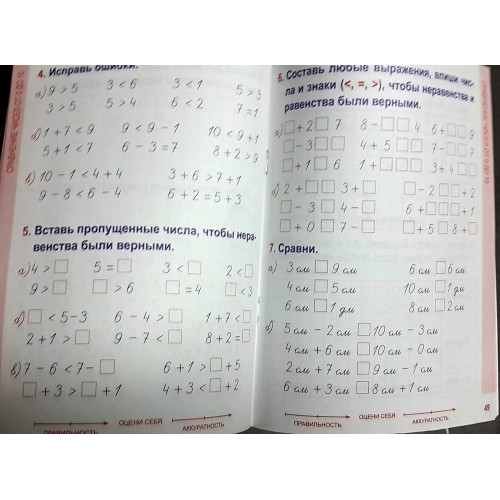 СРАВНЕНИЕ ЧИСЕЛ ОТ 0 ДО 10
4. Исправь ошибки.
а) 9 > 5 3 < 6 3 < 1 5 > 3
3 > 5 5 > 4 6 < 2 7 = 1
б) 1 + 7 < 9 9 < 9 - 1 10 < 9 + 1
5 + 1 < 7 6 - 3 = 7 8 + 2 > 9
в) 10 - 1 < 4 + 4 3 + 6 > 7 + 1
9 - 8 < 6 - 4 6 + 2 = 5 + 3
5. Вставь пропущенные числа, чтобы нера-
венства были верными.
а) 4 > □ 5 = □ 3 < □ 2 < □
9 > □ □ > 6 □ = 4 □ < 3
б) □ < 5 - 3 6 - 4 > □ 1 + 7 < □
2 + 1 > □ 9 - 7 < □ 8 + 2 = □
в) 7 - 6 < 7 - □ 6 + 1 > □ + 5
□ + 3 > □ + 1 4 + 3 < □ + 2
ОЦЕНИ СЕБЯ
ПРАВИЛЬНОСТЬ АККУРАТНОСТЬ
6. Составь любые выражения, впиши чис-
ла и знаки (<, =, >), чтобы неравенства и
равенства были верными.
а) □ + 2 □ 7 8 - □ □ 4 6 + □ □ 9
□ - 3 □ □ 4 + 5 □ □ □ 7 - □ □
□ + 1 □ 6 1 + □ □ □ 3 + 4 □ □
б) 2 + □ □ 3 + □ □ - 2 □ □ + 2
□ - 3 □ 4 - □ 6 + □ □ □ + □
□ + 0 □ □ - 7 □ + 5 □ 8 + □
7. Сравни.
а) 3 см □ 9 см 6 см □ 6 см
4 см □ 5 см 10 см □ 1 дм
6 см □ 1 дм 8 см □ 2 см
б) 5 см - 2 см □ 10 см - 3 см
4 см + 6 см □ 10 см - 0 см
2 см + 7 см □ 9 см - 1 см
6 см + 3 см □ 8 см + 1 см
ОЦЕНИ СЕБЯ
ПРАВИЛЬНОСТЬ АККУРАТНОСТЬ
49